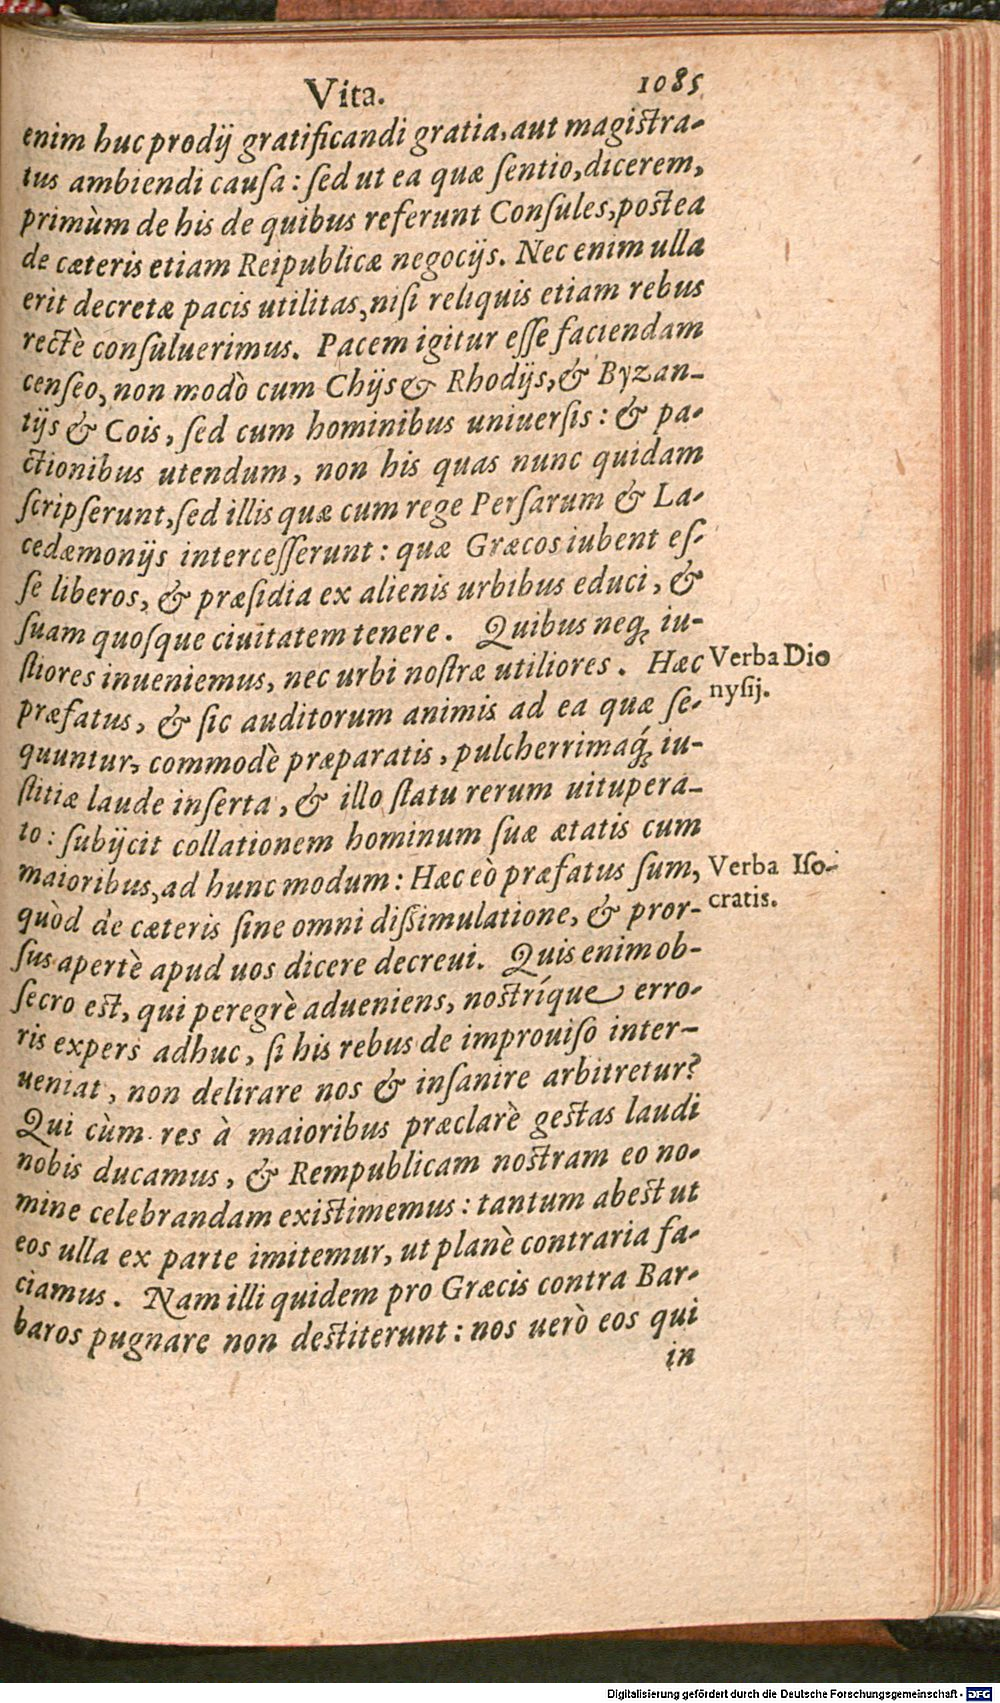 Vita. 1085
enim huc prodij gratificandi gratia, aut magistra-
tus ambiendi causa: sed ut ea quæ sentio, dicerem,
primùm de his de quibus referunt Consules, postea
de cæteris etiam Reipublicæ negocijs. Nec enim ulla
erit decretæ pacis utilitas, nisi reliquis etiam rebus
rectè consuluerimus. Pacem igitur esse faciendam
censeo, non modò cum Chijs & Rhodijs, & Byzan-
tijs & Cois, sed cum hominibus uniuersis: & pa-
ctionibus utendum, non his quas nunc quidam
scripserunt, sed illis quæ cum rege Persarum & La-
cedæmonijs intercesserunt: quæ Græcos iubent es-
se liberos, & præsidia ex alienis urbibus educi, &
suam quosque ciuitatem tenere. Quibus neq; iu-
stiores inueniemus, nec urbi nostræ utiliores. Hæc
Verba Dio
nysij.
præfatus, & sic auditorum animis ad ea quæ se-
quuntur, commodè præparatis, pulcherrimaq́; iu-
stitiæ laude inserta, & illo statu rerum uitupera-
to: subijcit collationem hominum suæ ætatis cum
maioribus, ad hunc modum: Hæc eò præfatus sum,
Verba Iso-
cratis.
quòd de cæteris sine omni dissimulatione, & pror-
sus apertè apud uos dicere decreui. Quis enim ob-
secro est, qui peregrè adueniens, nostríque erro-
ris expers adhuc, si his rebus de improuiso inter-
ueniat, non delirare nos & insanire arbitretur?
Qui cùm res à maioribus præclarè gestas laudi
nobis ducamus, & Rempublicam nostram eo no-
mine celebrandam existimemus: tantum abest ut
eos ulla ex parte imitemur, ut planè contraria fa-
ciamus. Nam illi quidem pro Græcis contra Bar-
baros pugnare non destiterunt: nos uerò eos qui
in
Digitalisierung gefördert durch die Deutsche Forschungsgemeinschaft - DFG